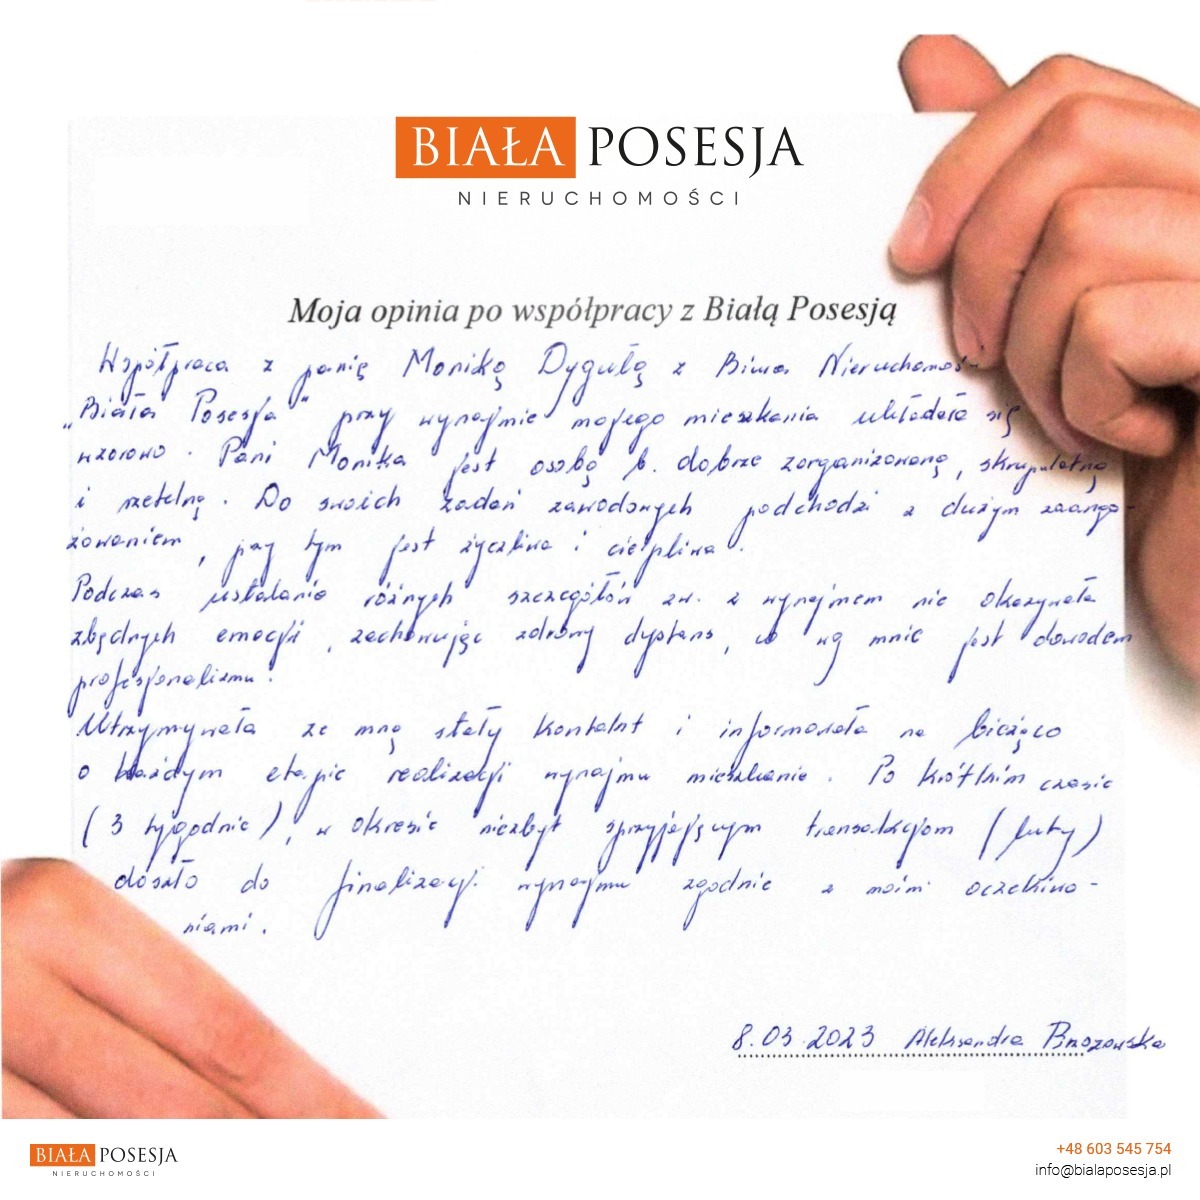 BIAŁA POSESJA
NIERUCHOMOŚCI
Moja opinia po współpracy z Białą Posesją
Współpraca z panią Moniką Dygułą z Biura Nieruchomoś
„Biała Posesja" przy wynajmie mojego mieszkania układała się
wzorowo. Pani Monika jest osobą b. dobrze zorganizowaną, skrupulatną
i rzetelną. Do swoich zadań zawodowych podchodzi z dużym zaanga-
żowaniem, przy tym jest życzliwa i cierpliwa.
Podczas ustalania różnych szczegółów zw. z wynajmem nie okazywała
zbędnych emocji, zachowując zdrowy dystans, co wg mnie jest dowodem
profesjonalizmu.
Utrzymywała ze mną stały kontakt i informowała na bieżąco
o każdym etapie realizacji wynajmu mieszkania. Po krótkim czasie
(3 tygodnie), w okresie niezbyt sprzyjającym transakcjom (luty)
doszło do finalizacji wynajmu zgodnie z moimi oczekiwa-
niami.
8.03.2023 Aleksandra Brzozowska
BIAŁA POSESJA
NIERUCHOMOŚCI
+48 603 545 754
info@bialaposesja.pl